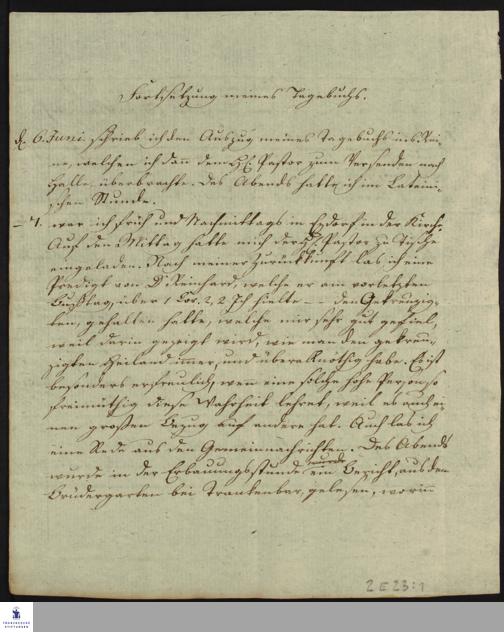 Fortsetzung meines Tagebuchs.
d. 6. Juni schrieb ich den Auszug meines Tagebuchs ins Rei-
ne, welchen ich dann dem H. Pastor zum Versenden nach
Halle überbrachte. Des Abends hatte ich im Lateini-
schen Stunde.
– 7. war ich früh und Nachmittags in der Kirche.
Auf den Mittag hatte mich der H. Pastor zu Tische
eingeladen. Nach meiner Zurückkunft las ich eine
Predigt von D. Reinhard, welche er am vorletzten
Bußtag, über 1 Cor. 2, 2 Ich hielte – – den Gekreuzig-
ten, gehalten hatte, welche mir sehr gut gefiel,
weil darin gezeigt wird, wie man den gekreu-
zigten Heiland immer und überall nöthig habe. Es ist
besonders erfreulich, wenn eine solche hohe Person so
freimüthig diese Wahrheit lehret, weil es auch ei-
nen großen Bezug auf andere hat. Auch las ich
eine Rede aus den Gemeinnachrichten. Des Abends
wurde in der Erbauungsstunde ein Bericht, aus dem
Brüdergarten bei Trankenbar, gelesen, worinn
2 E 23:1
FRANCKESCHE
STIFTUNGEN